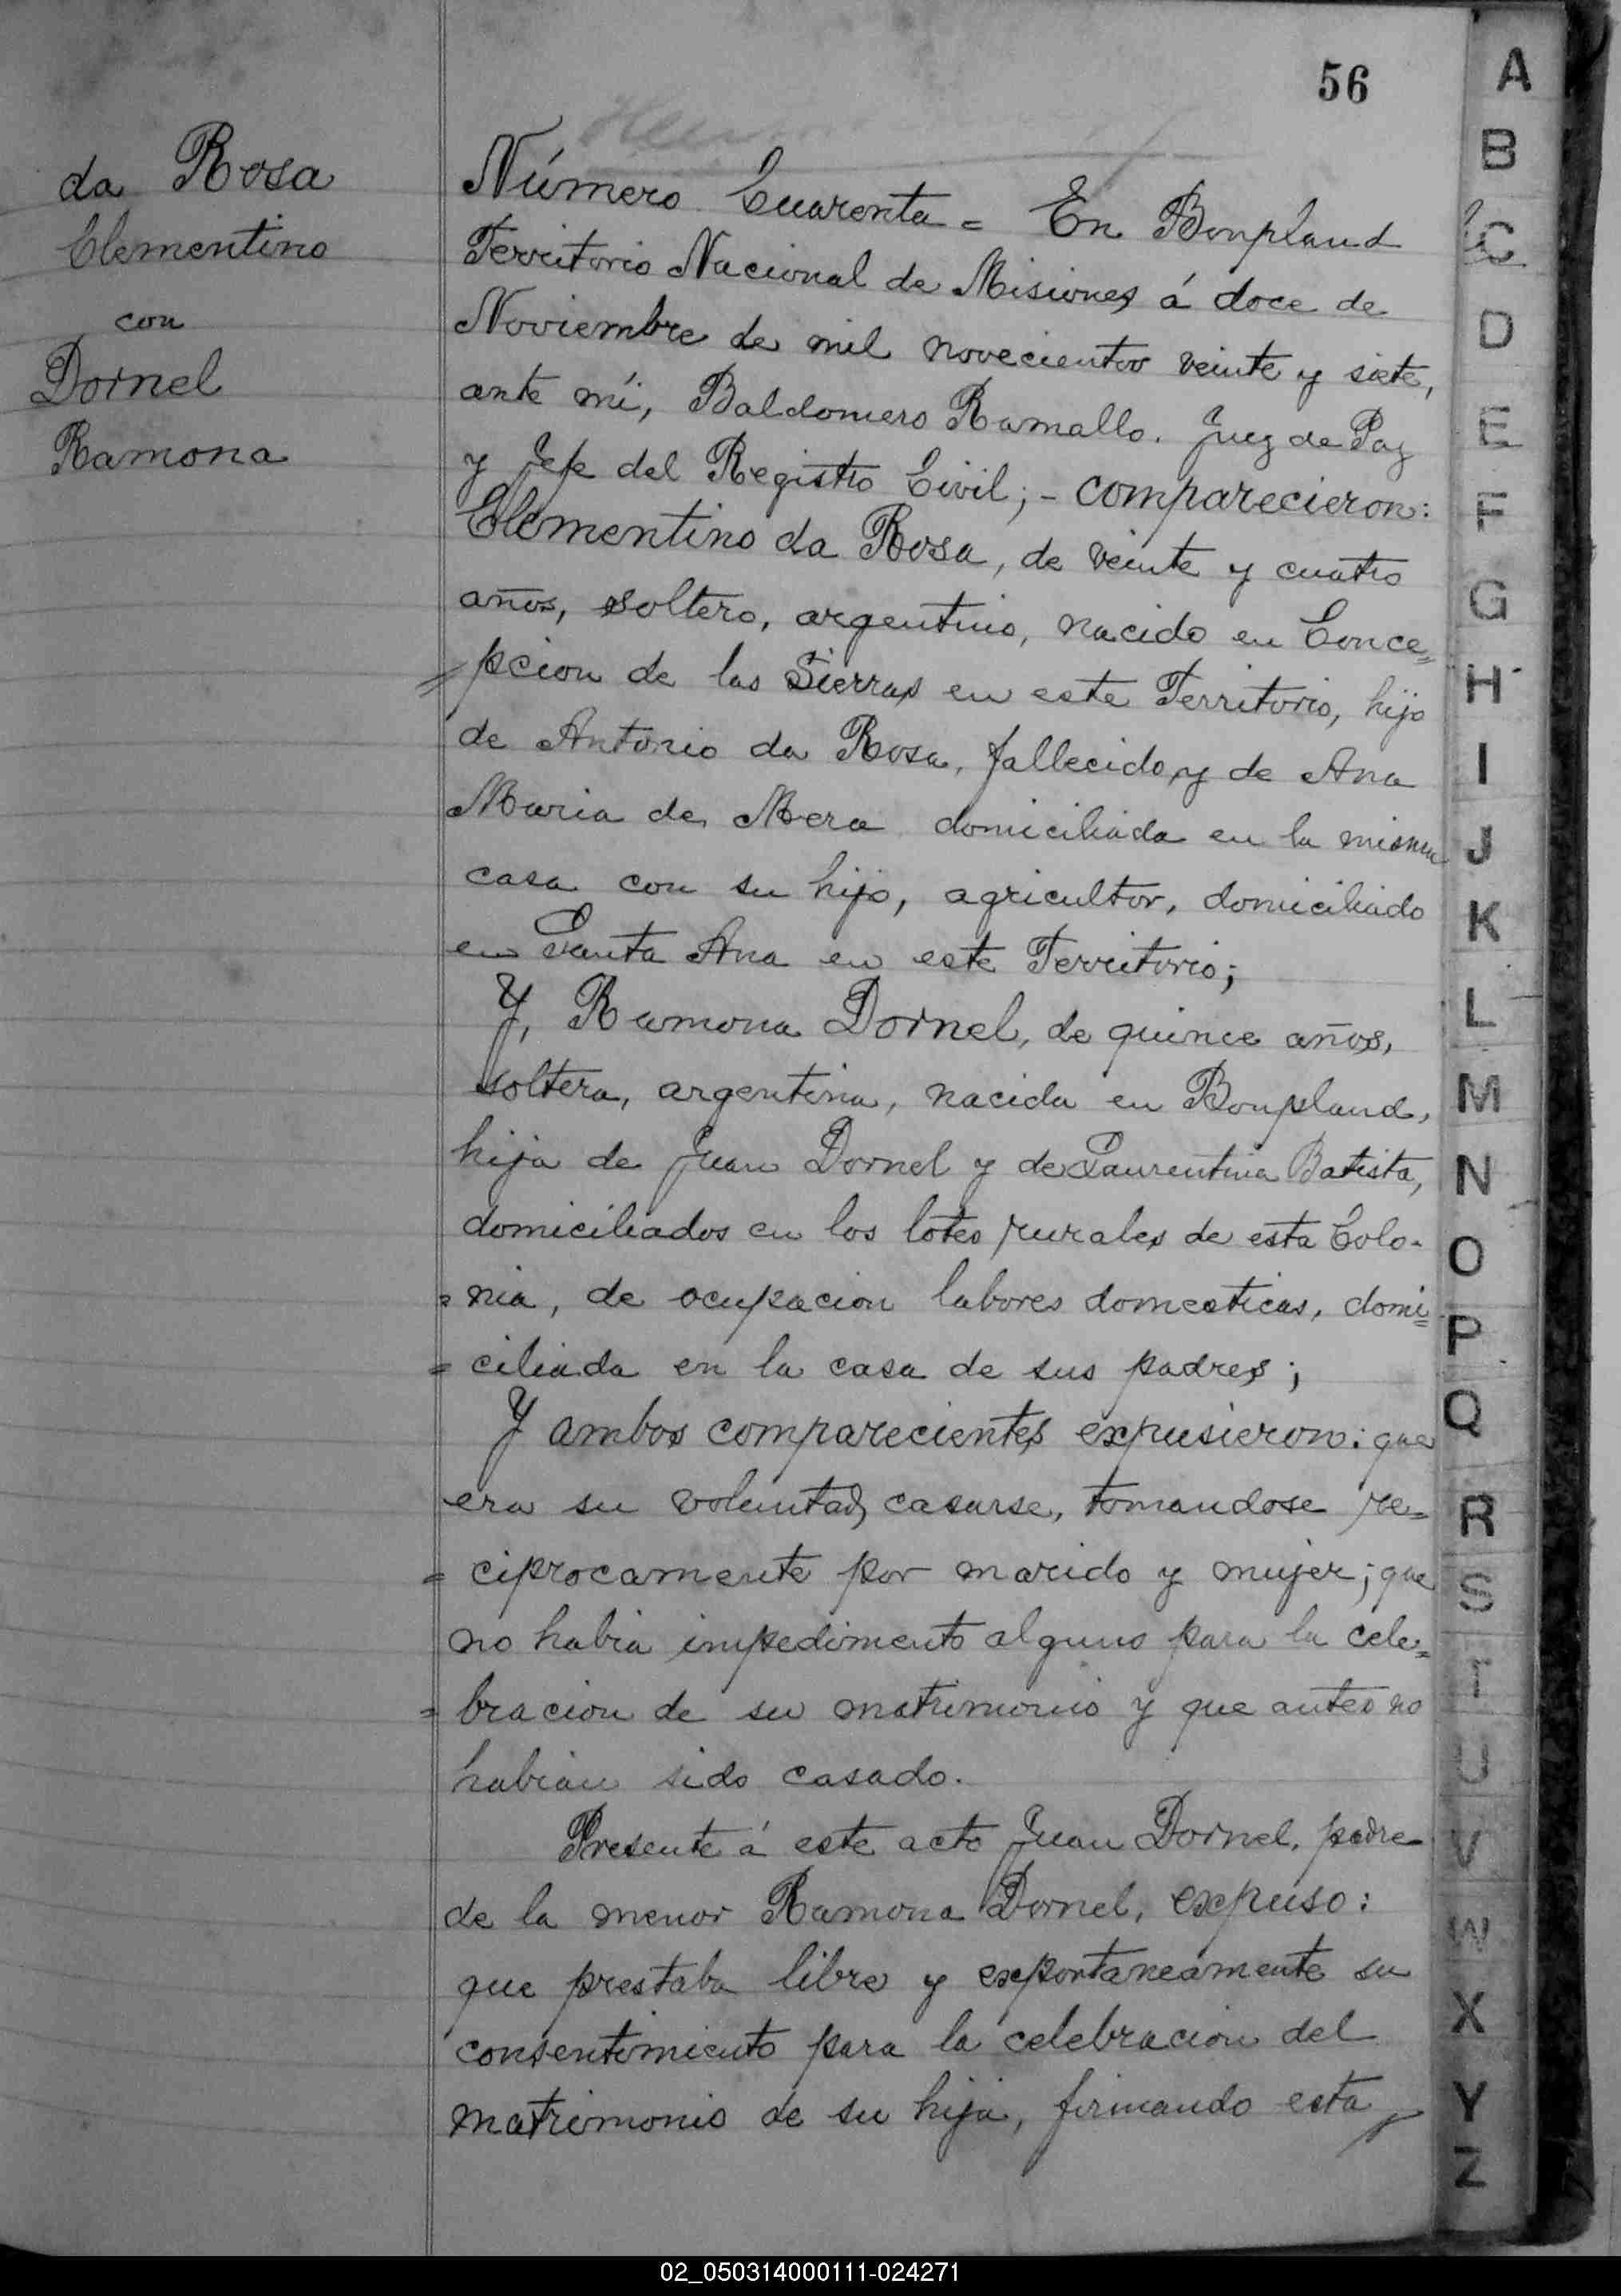 56
da Rosa
Clementino
con
Dornel
Ramona
Número Cuarenta = En Bonpland
Territorio Nacional de Misiones á doce de
Noviembre de mil novecientos veinte y siete,
ante mí, Baldomero Ramallo. Juez de Paz
y Jefe del Registro Civil; - comparecieron:
Clementino da Rosa, de veinte y cuatro
años, soltero, argentino, nacido en Conce=
=pcion de las Sierras en este Territorio, hijo
de Antonio da Rosa, fallecido, y de Ana
Maria de Mera domiciliada en la misma
casa con su hijo, agricultor, domiciliado
en Santa Ana en este Territorio;
Y, Ramona Dornel, de quince años,
soltera, argentina, nacida en Bonpland,
hija de Juan Dornel y de Laurentina Batista,
domiciliados en los lotes rurales de esta Colo-
=nia, de ocupacion labores domesticas, domi=
=ciliada en la casa de sus padres;
Y ambos comparecientes expusieron: que
era su voluntad, casarse, tomandose re=
=ciprocamente por marido y mujer; que
no habia impedimento alguno para la cele=
=bracion de su matrimonio y que antes no
habian sido casado.
Presente á este acto Juan Dornel, padre
de la menor Ramona Dornel, expuso:
que prestaba libre y expontaneamente su
consentimiento para la celebracion del
matrimonio de su hija, firmando esta
A
B
C
D
E
F
G
H
I
J
K
L
M
N
O
P
Q
R
S
T
U
V
W
X
Y
Z
02_050314000111-024271